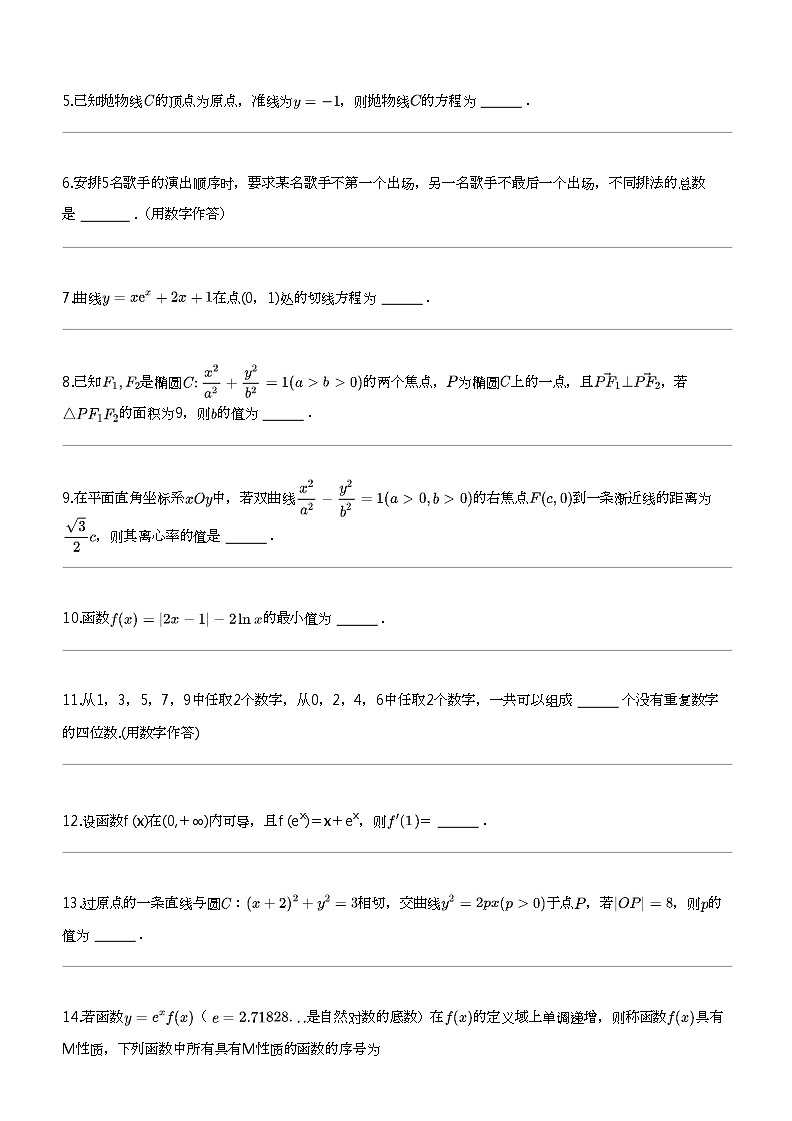 5.已知抛物线C的顶点为原点，准线为y = −1，则抛物线C的方程为 ______ .
6.安排5名歌手的演出顺序时，要求某名歌手不第一个出场，另一名歌手不最后一个出场，不同排法的总数
是 _______ .（用数字作答）
7.曲线y = xe^x + 2x + 1在点(0，1)处的切线方程为 ______ .
8.已知F₁, F₂是椭圆C: x²/a² + y²/b² = 1(a > b > 0)的两个焦点，P为椭圆C上的一点，且\vec{PF}₁⊥\vec{PF}₂，若
△PF₁F₂的面积为9，则b的值为 ______ .
9.在平面直角坐标系xOy中，若双曲线x²/a² − y²/b² = 1(a > 0, b > 0)的右焦点F(c, 0)到一条渐近线的距离为
√3/2 c，则其离心率的值是 ______ .
10.函数f(x) = |2x − 1| − 2 ln x的最小值为 ______ .
11.从1，3，5，7，9中任取2个数字，从0，2，4，6中任取2个数字，一共可以组成 ______ 个没有重复数字
的四位数.(用数字作答)
12.设函数f (x)在(0,＋∞)内可导，且f (e^x)＝x＋e^x，则f′(1)＝ ______ .
13.过原点的一条直线与圆C：(x + 2)² + y² = 3相切，交曲线y² = 2px(p > 0)于点P，若|OP| = 8，则p的
值为 ______ .
14.若函数y = e^x f(x)（ e = 2.71828. . .是自然对数的底数）在f(x)的定义域上单调递增，则称函数f(x)具有
M性质，下列函数中所有具有M性质的函数的序号为